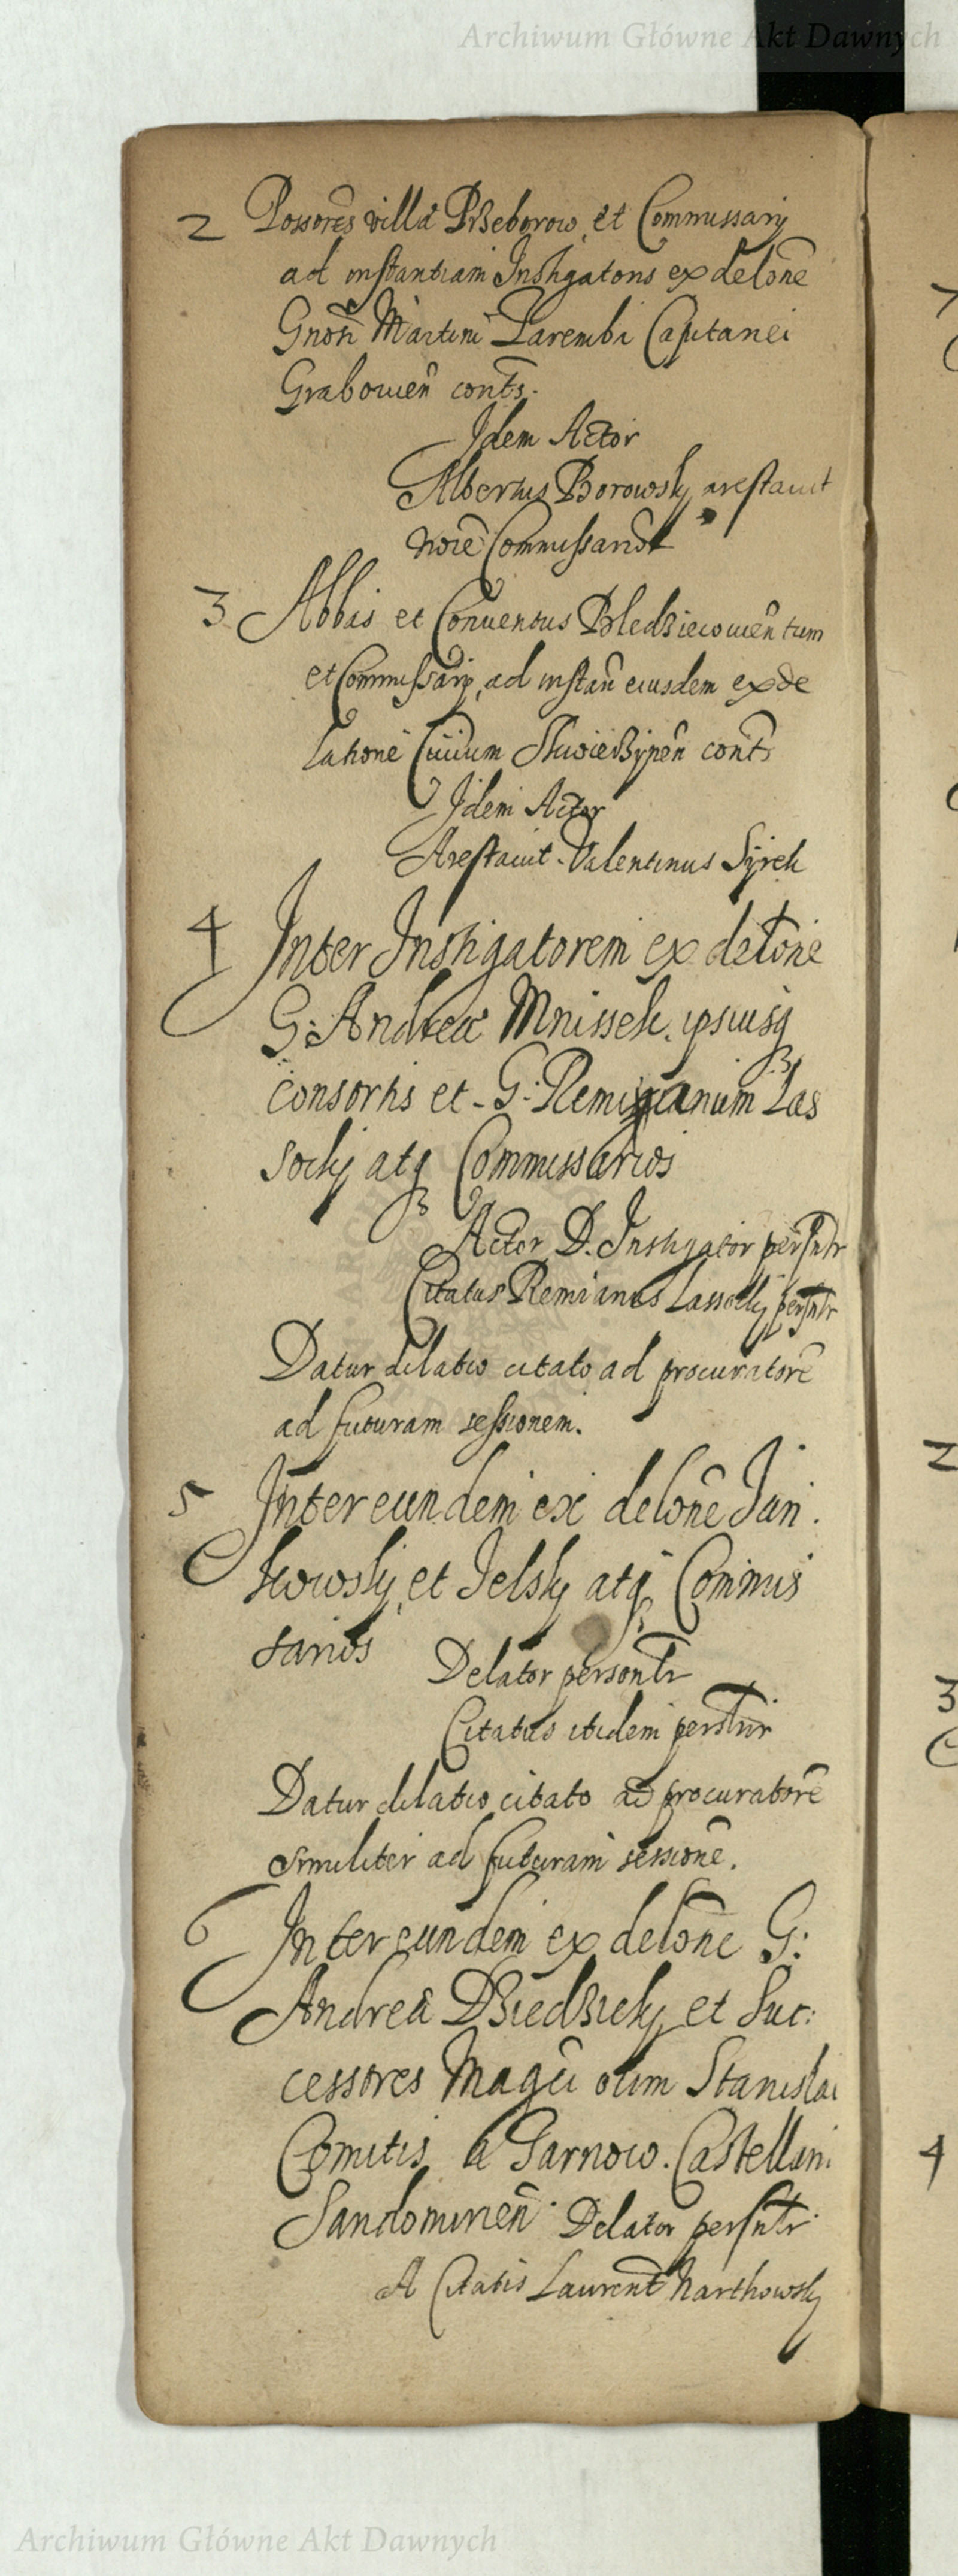 Archiwum Główne Akt Dawnych
2 Possores villa Przeborow et Commissarij
ad instantiam Instigatoris ex delone
Gnosi Martini Zarembi Capitanei
Grabowien conts.
Idem Actor
Albertus Borowsky arestauit
noie Commissariox
3 Abbis et Conuentus Bledzieiowien tum
et Commissarij ad instan eiusdem ex de
latione Ciuium Skwierzynen conts
Idem Actor
Arestauit Valentinus Syrek
4 Inter Instigatorem ex delone
G. Andrea Mnissek ipsiusq
consortis et G. Remianum Las
socky atq Commissarios
Actor D. Instigator persntr
Citatus Remianus Lassocky persntr
Datur dilatio citato ad procuratore
ad futuram sessionem.
5 Inter eundem ex delone Jan
kowsky et Jelsky atq Commis
sarios Delator persontr
Citatus itidem perstnr
Datur dilatio citato ad procuratore
similiter ad futuram sessione.
6 Inter eundem ex delone G:
Andrea Dziedzicky et Suc:
cessores Magci olim Stanislai
Comitis a Tarnow Castellani
Sandomirien Delator persntr
A Citatis Laurent Narthowsky
7
2
3
4
Archiwum Główne Akt Dawnych